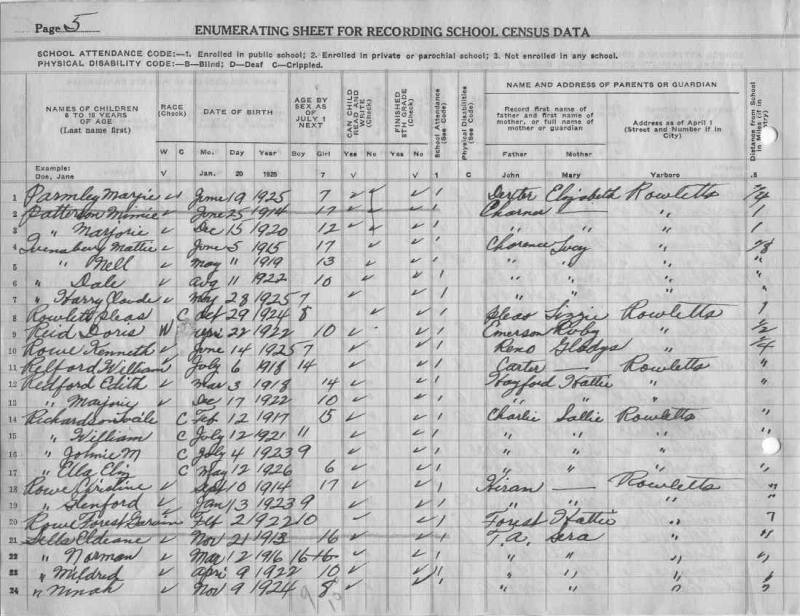 Page 5
ENUMERATING SHEET FOR RECORDING SCHOOL CENSUS DATA
SCHOOL ATTENDANCE CODE:—1. Enrolled in public school; 2. Enrolled in private or parochial school; 3. Not enrolled in any school.
PHYSICAL DISABILITY CODE:—B—Blind; D—Deaf C—Crippled.
NAMES OF CHILDREN 6 TO 18 YEARS OF AGE (Last name first) RACE (Check) DATE OF BIRTH AGE BY SEX AS OF JULY 1 NEXT CAN CHILD READ AND WRITE (Check) FINISHED 8TH GRADE (Check) School Attendance (See Code) Physical Disabilities (See Code) NAME AND ADDRESS OF PARENTS OR GUARDIAN Distance from School in Miles
Record first name of father and first name of mother, or full name of mother or guardian Address as of April 1 (Street and Number if in City)
W C Mo. Day Year Boy Girl Yes No Yes No Father Mother
Example: Doe, Jane V Jan. 20 1925 7 V V 1 C John Mary Yarboro .5
1 Parmley Marjie ✓ June 19 1925 7 ✓ ✓ ✓ 1 Dexter Elizabeth Rowletts
2 Patterson Minnie ✓ June 25 1914 17 ✓ ✓ 1 — " 1
3 " Marjorie ✓ Dec 15 1920 12 ✓ ✓ 1 " " 1
4 Mattie ✓ June 5 1915 17 ✓ ✓ 1 Clarence
5 " Nell ✓ May 11 1919 13 ✓ ✓ 1 " " " "
6 " Dale ✓ Aug 11 1922 10 ✓ ✓ 1 " " " "
7 " Harry Claude ✓ May 28 1925 7 ✓ ✓ 1 " " " "
8 Rowlett Pleas C Oct 29 1924 8 ✓ ✓ 1 Pleas Lizzie Rowletts 1
9 Reid Doris W Apri 22 1922 10 ✓ ✓ 1 Emerson Ruby " 1/2
10 Rowe Kenneth ✓ June 14 1925 7 ✓ ✓ 1 Reno Gladys "
11 William ✓ July 6 1918 14 ✓ ✓ 1 Carter — Rowletts "
12 Redford Edith ✓ Mar 3 1918 14 ✓ ✓ 1 Hayford Hattie " "
13 " Marjorie ✓ Dec 17 1922 10 ✓ ✓ 1 " " " "
14 Richardson C Feb 12 1917 15 ✓ ✓ 1 Charlie Sallie Rowletts "
15 " William C July 12 1921 11 ✓ ✓ 1 " " " "
16 " Johnie M C July 4 1923 9 ✓ ✓ 1 " " " "
17 " Ella C May 12 1926 6 ✓ ✓ 1 " " " "
18 Rowe Christine ✓ Sept 10 1914 17 ✓ ✓ 1 Hiram — Rowletts "
19 " Glenford ✓ Jan 13 1923 9 ✓ ✓ 1 " " " "
20 Rowe Forest ✓ Feb 2 1922 10 ✓ ✓ 1 Forest Hattie "
21 ✓ Nov 21 1913 16 ✓ ✓ 1 T.A. Sera " "
22 " Norman ✓ Mar 12 1916 16 ✓ ✓ 1 " " " "
23 " Mildred ✓ Apri 9 1922 10 ✓ ✓ 1 " " " "
24 " ✓ Nov 9 1924 8 ✓ ✓ 1 " " " "